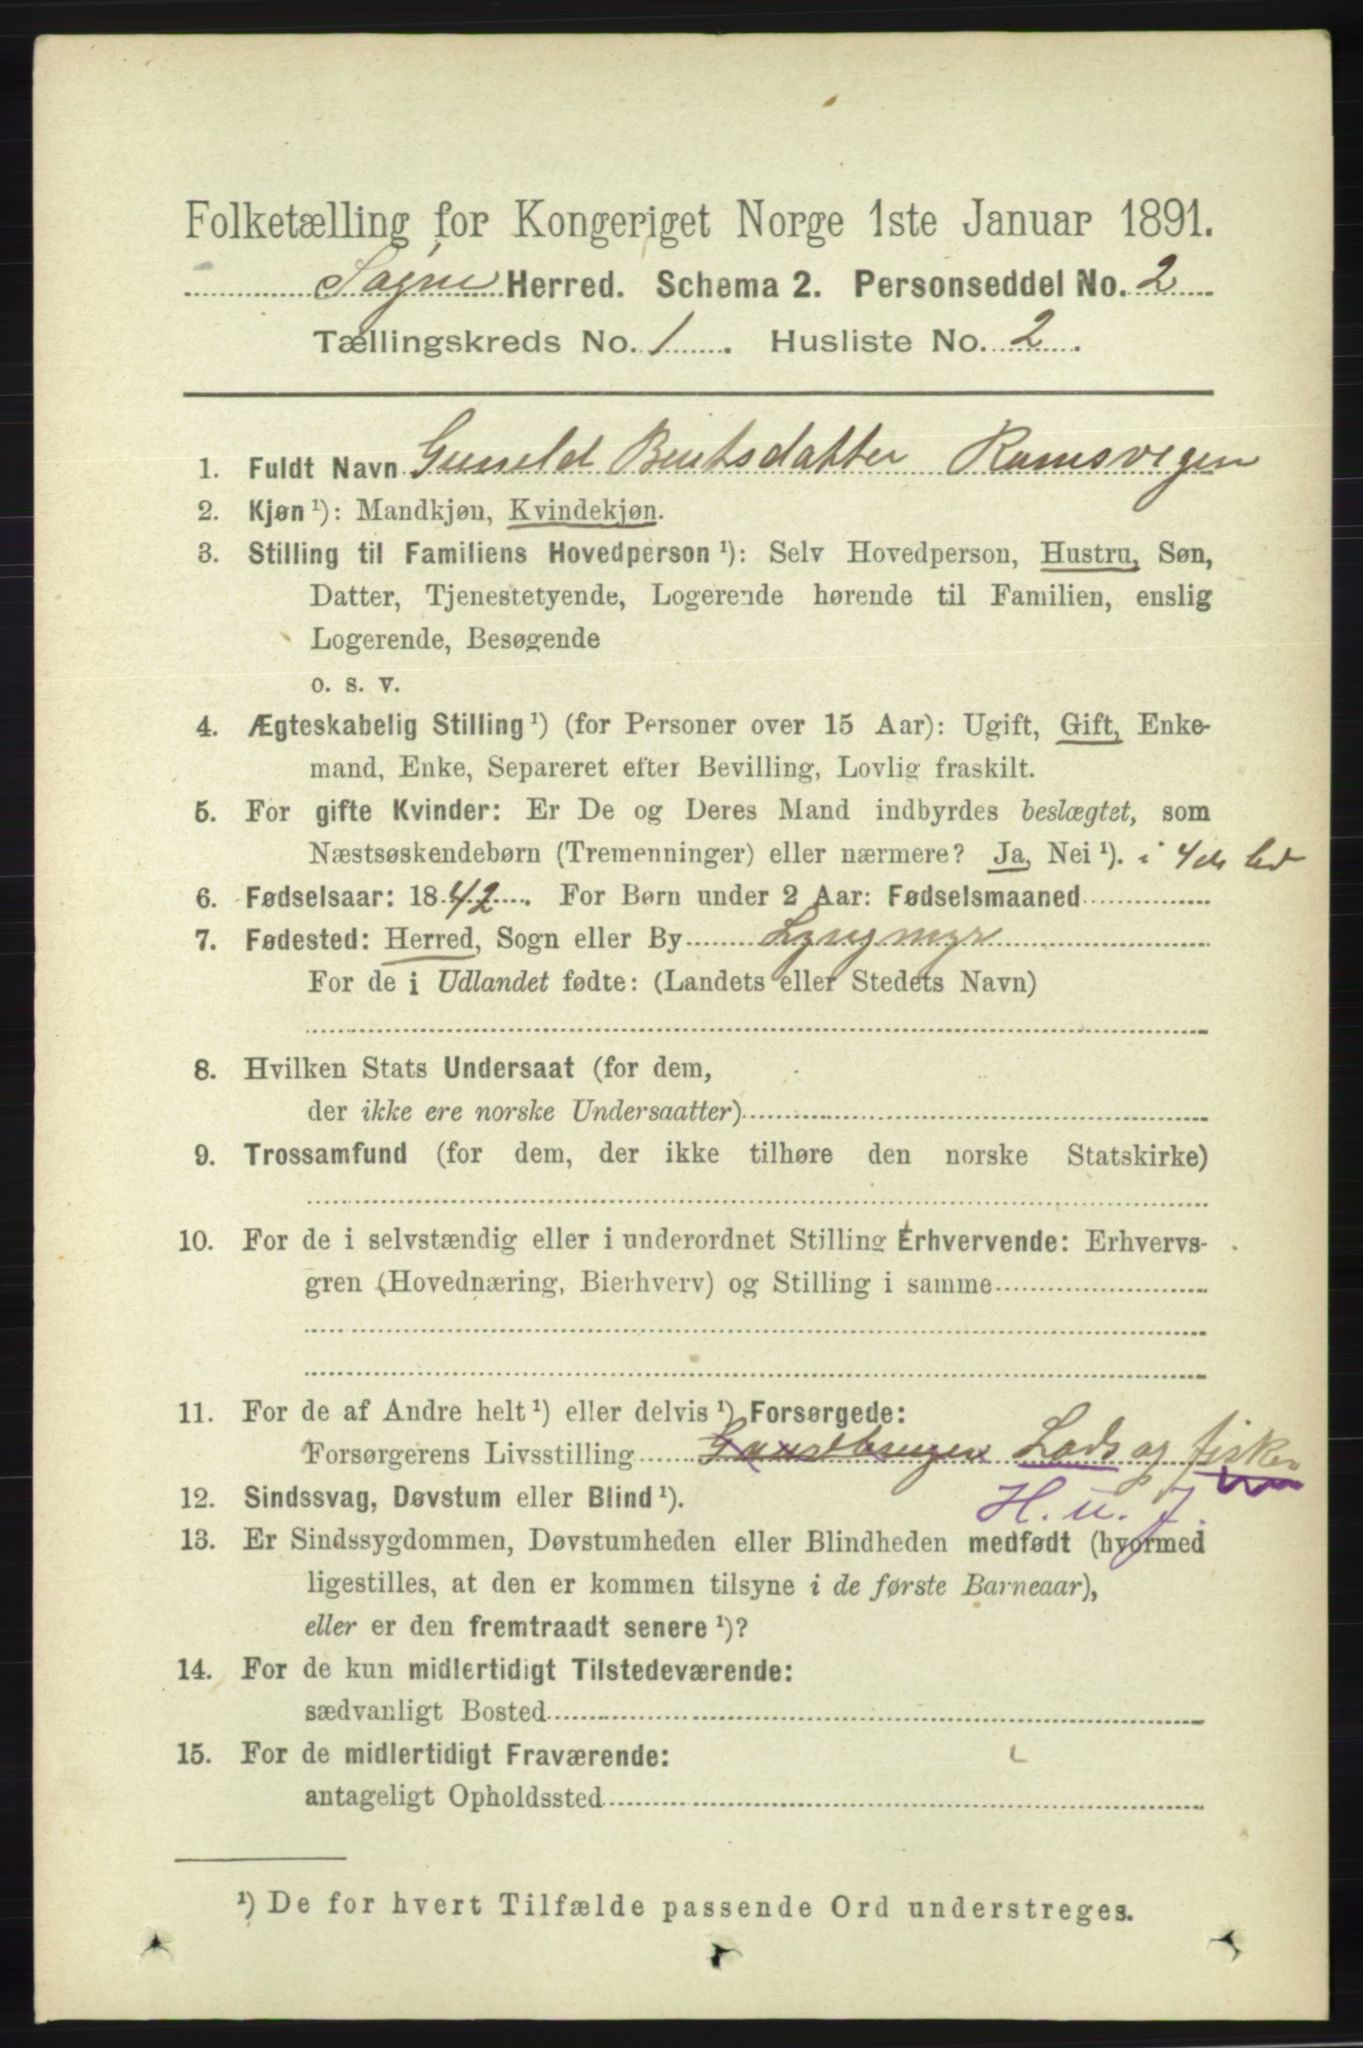 Folketælling for Kongeriget Norge 1ste Januar 1891.
Søgne Herred. Schema 2. Personseddel No. 2
Tællingskreds No. 1. Husliste No. 2.
1. Fuldt Navn Guneld Bentsdatter Ramsvigen
2. Kjøn ¹): Mandkjøn, Kvindekjøn.
3. Stilling til Familiens Hovedperson ¹): Selv Hovedperson, Hustru, Søn,
Datter, Tjenestetyende, Logerende hørende til Familien, enslig
Logerende, Besøgende
o. s. v.
4. Ægteskabelig Stilling ¹) (for Personer over 15 Aar): Ugift, Gift, Enke-
mand, Enke, Separeret efter Bevilling, Lovlig fraskilt.
5. For gifte Kvinder: Er De og Deres Mand indbyrdes beslægtet, som
Næstsøskendebørn (Tremenninger) eller nærmere? Ja, Nei ¹). i 4de led
6. Fødselsaar: 1842. For Børn under 2 Aar: Fødselsmaaned
7. Fødested: Herred, Sogn eller By Lyngmyr
For de i Udlandet fødte: (Landets eller Stedets Navn)
8. Hvilken Stats Undersaat (for dem,
der ikke ere norske Undersaatter)
9. Trossamfund (for dem, der ikke tilhøre den norske Statskirke)
10. For de i selvstændig eller i underordnet Stilling Erhvervende: Erhvervs-
gren (Hovednæring, Bierhverv) og Stilling i samme
11. For de af Andre helt ¹) eller delvis ¹) Forsørgede:
Forsørgerens Livsstilling Gaardbruger Lods og fisker
12. Sindssvag, Døvstum eller Blind ¹). H. u. J.
13. Er Sindssygdommen, Døvstumheden eller Blindheden medfødt (hvormed
ligestilles, at den er kommen tilsyne i de første Barneaar),
eller er den fremtraadt senere ¹)?
14. For de kun midlertidigt Tilstedeværende:
sædvanligt Bosted
15. For de midlertidigt Fraværende:
antageligt Opholdssted
¹) De for hvert Tilfælde passende Ord understreges.